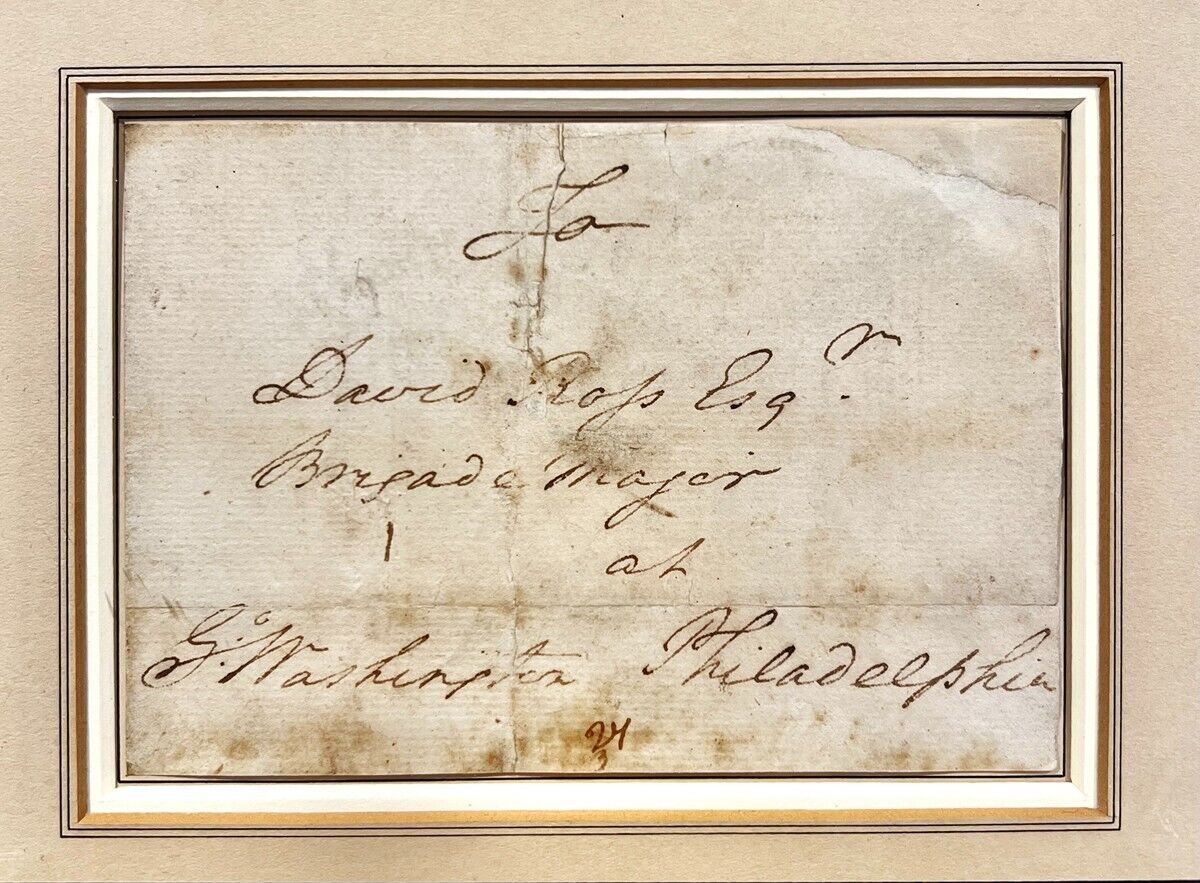 To
David Ross Esqr.
Brigade Major
1
at
Go. Washington Philadelphia
24
3